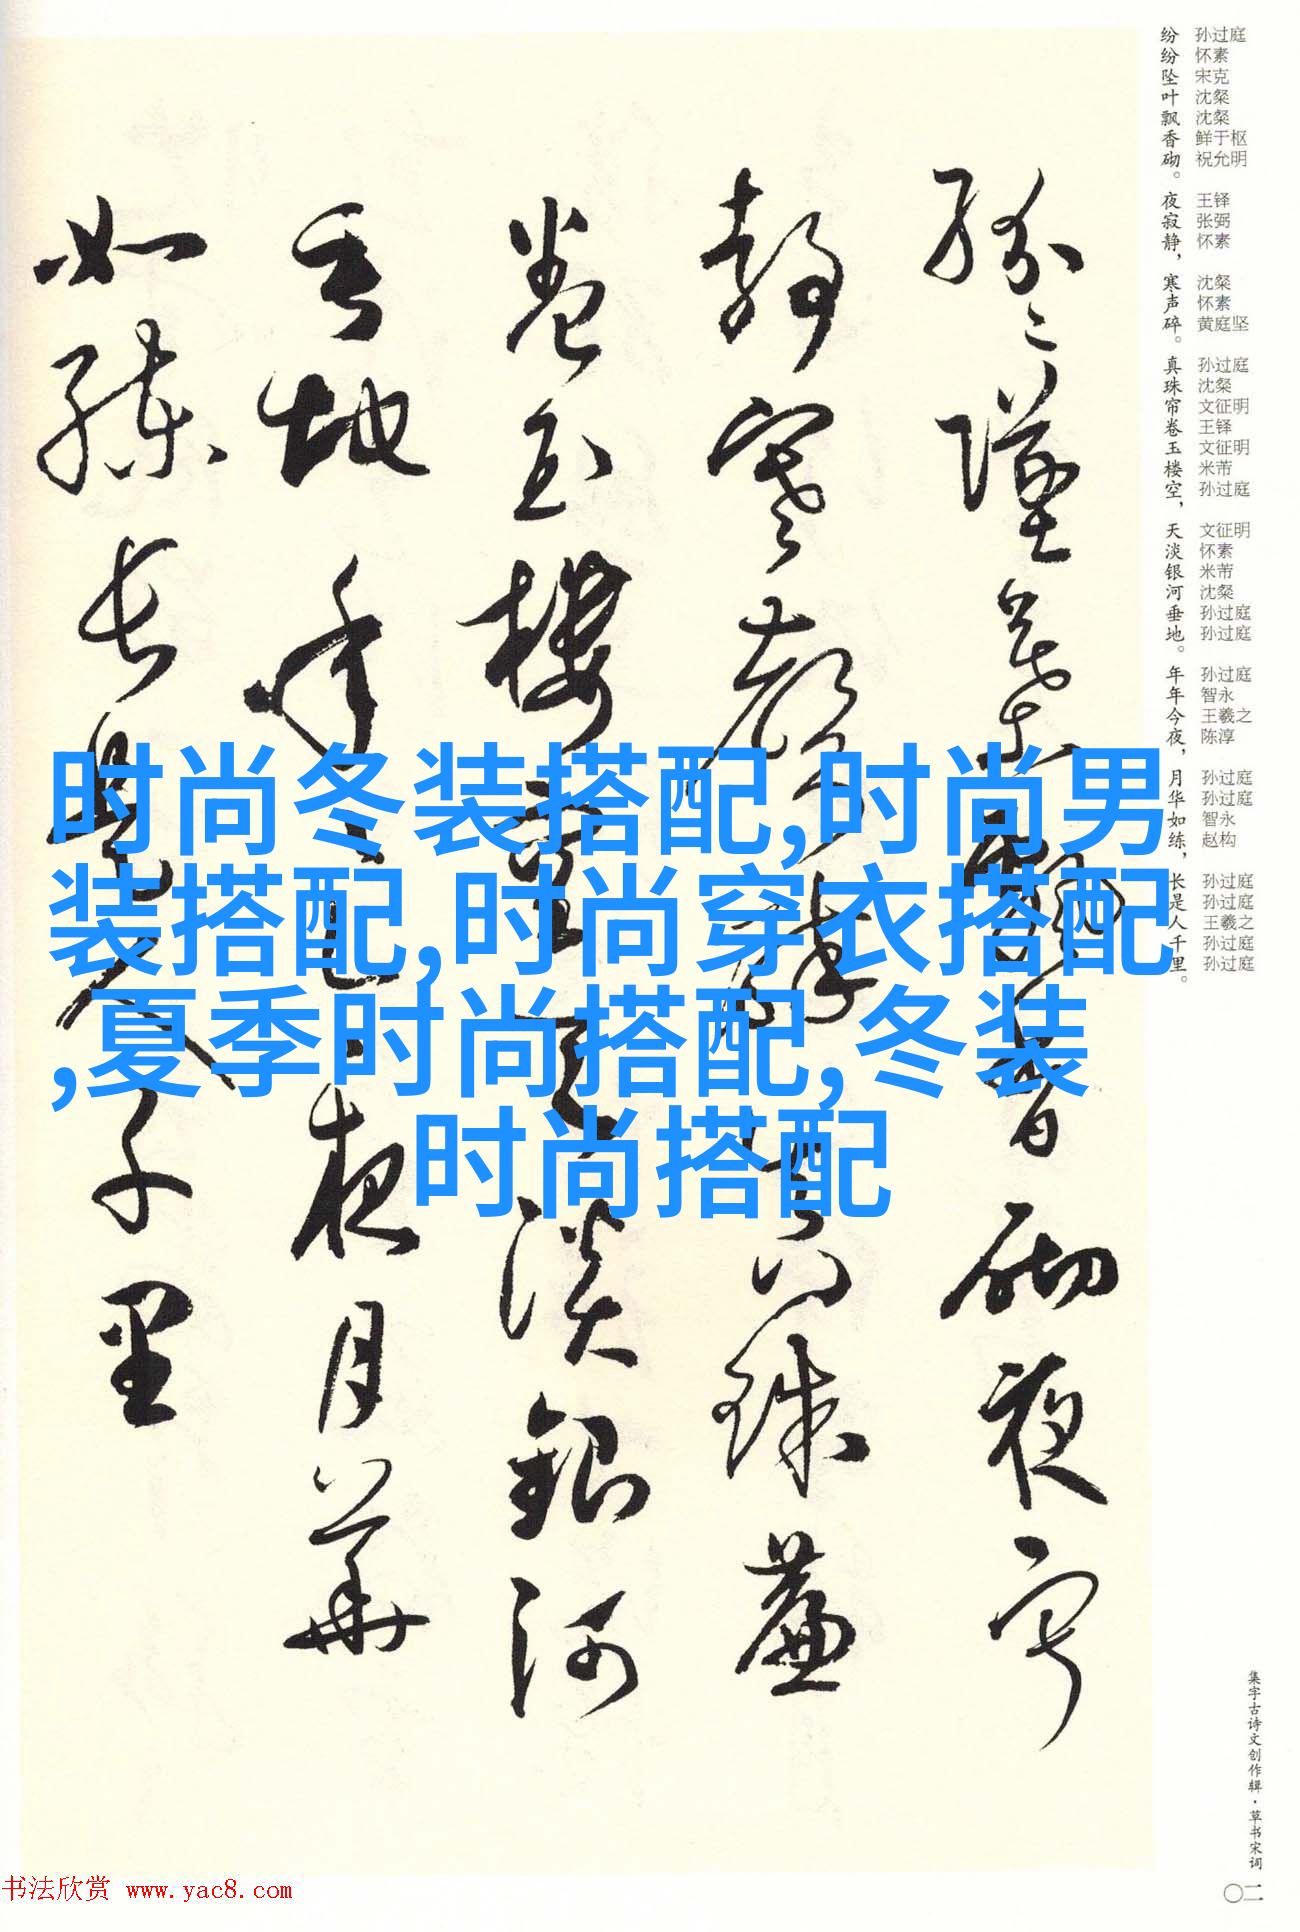 纷纷坠叶飘香砌。夜寂静，寒声碎。真珠帘卷玉楼空，天淡银河垂地。年年今夜，月华如练，长是人千里。
孙过庭
怀素
宋克
沈粲
沈粲
鲜于枢
祝允明
王铎
张弼
怀素
沈粲
怀素
黄庭坚
孙过庭
沈粲
文征明
王铎
文征明
米芾
孙过庭
文征明
怀素
米芾
沈粲
孙过庭
孙过庭
孙过庭
智永
王羲之
陈淳
孙过庭
孙过庭
智永
赵构
孙过庭
孙过庭
王羲之
孙过庭
孙过庭
纷纷坠葉飘香砌夜寂
静寒聲碎真珠簾
卷玉樓空天淡銀河
垂地年年今夜月華
如練长是人千里
时尚冬装搭配,时尚男
装搭配,时尚穿衣搭配
,夏季时尚搭配,冬装
时尚搭配
集字古诗文创作辑·草书宋词
〇二
书法欣赏 www.yac8.com